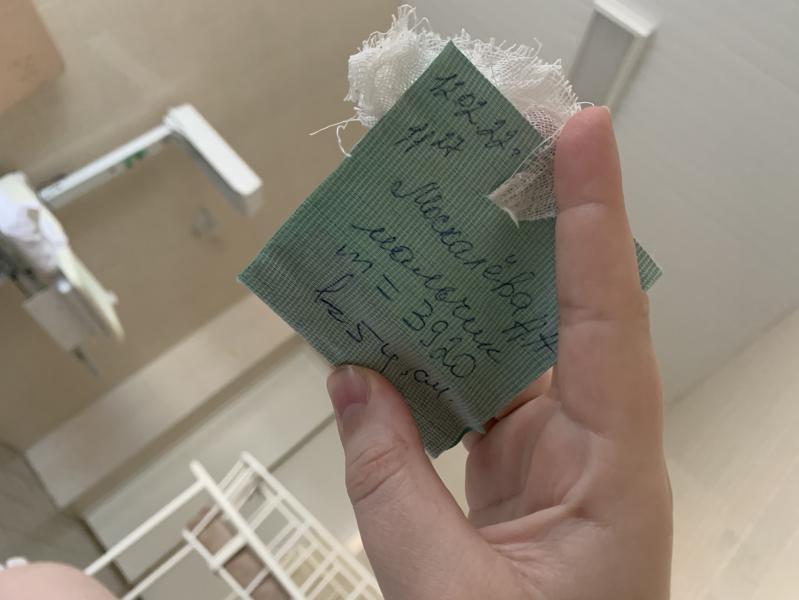 12 02 22.
Москалёва
мальчик
m = 3920
54 см.